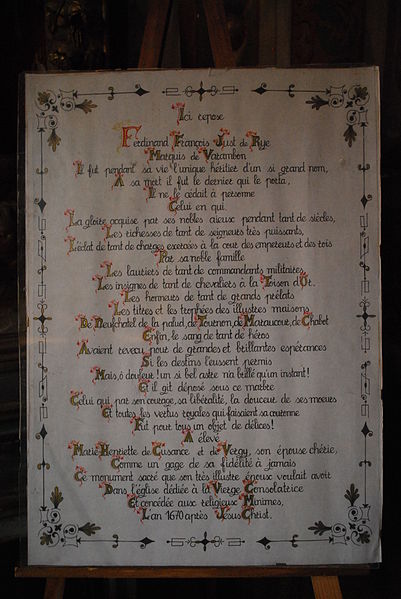 Ici repose
Ferdinand François Just de Rye
Marquis de Varambon
Il fut pendant sa vie l'unique héritier d'un si grand nom,
A sa mort il fut le dernier qui le porta,
Il ne le céda à personne
Celui en qui
La gloire acquise par ses nobles aïeux pendant tant de siècles,
Les richesses de tant de seigneurs très puissants,
L'éclat de tant de charges exercées à la cour des empereurs et des rois
Par sa noble famille
Les lauriers de tant de commandants militaires
Les insignes de tant de chevaliers à la Toison d'Or.
Les honneurs de tant de grands prélats
Les titres et les trophées des illustres maisons
De Neufchatel de la palud, de Tournon, de Chabot
Enfin, le sang de tant de héros
Avaient revécu pour de grandes et brillantes espérances
Si les destins l'eussent permis
Mais, ô douleur! un si bel astre n'a brillé qu'un instant!
Et il gît déposé sous ce marbre
Celui qui par son courage, sa libéralité, la douceur de ses moeurs
Et toutes les vertus royales qui faisaient sa couronne
Fut pour tous un objet de délices!
A élevé
Marie Henriette de Cusance et de Vergy, son épouse chérie,
Comme un gage de sa fidélité à jamais
Ce monument sacré que son très illustre époux voulait avoir
Dans l'église dédiée à la Vierge Consolatrice
Et concédée aux religieux Minimes,
L'an 1670 après Jésus Christ.